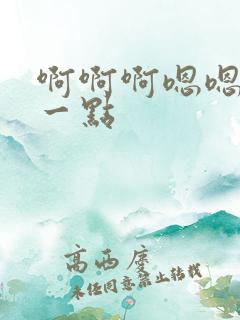 啊啊啊嗯嗯
一點
高西度
未任同意禁止转载